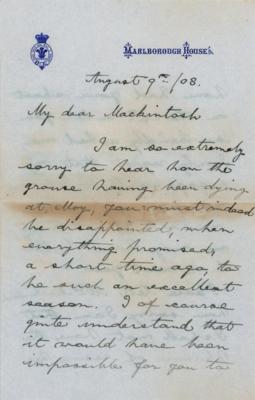 MARLBOROUGH HOUSE.
August 9th/08.
My dear Mackintosh
I am so extremely
sorry to hear how the
grouse having been dying
at Moy, you must indeed
be disappointed, when
everything promised,
a short time ago, to
be such an excellent
season. I of course
quite understand that
it would have been
impossible for you to